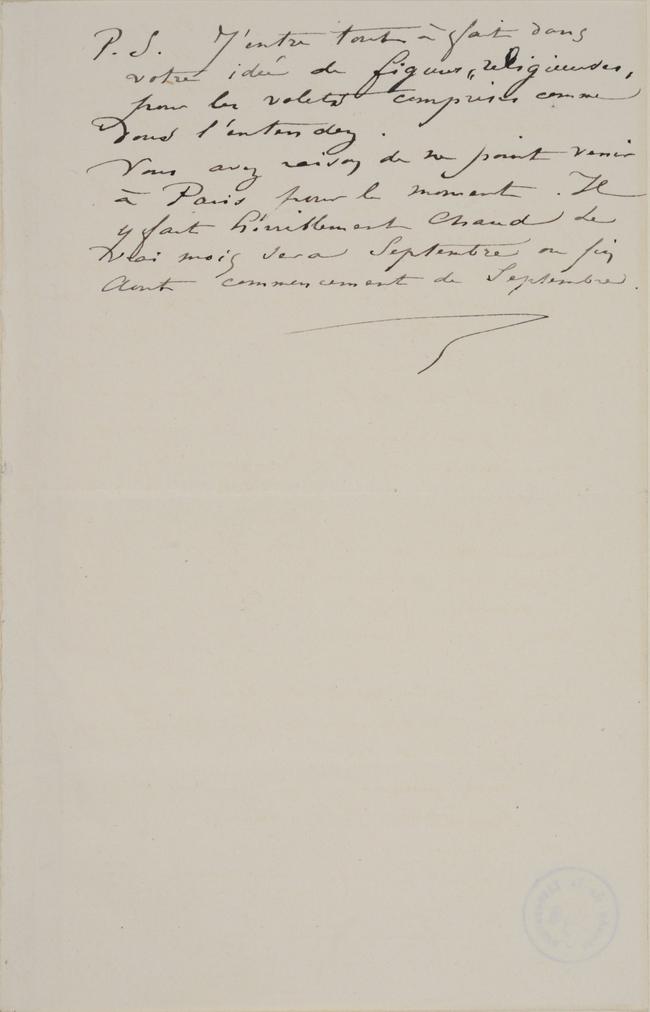 P. S. J'entre tout à fait dans
votre idée de figures „religieuses,
pour les volets comprises comme
vous l'entendez.
Vous avez raison de ne point venir
à Paris pour le moment. Il
y fait horriblement chaud le
vrai mois sera Septembre ou fin
Aout commencement de Septembre.